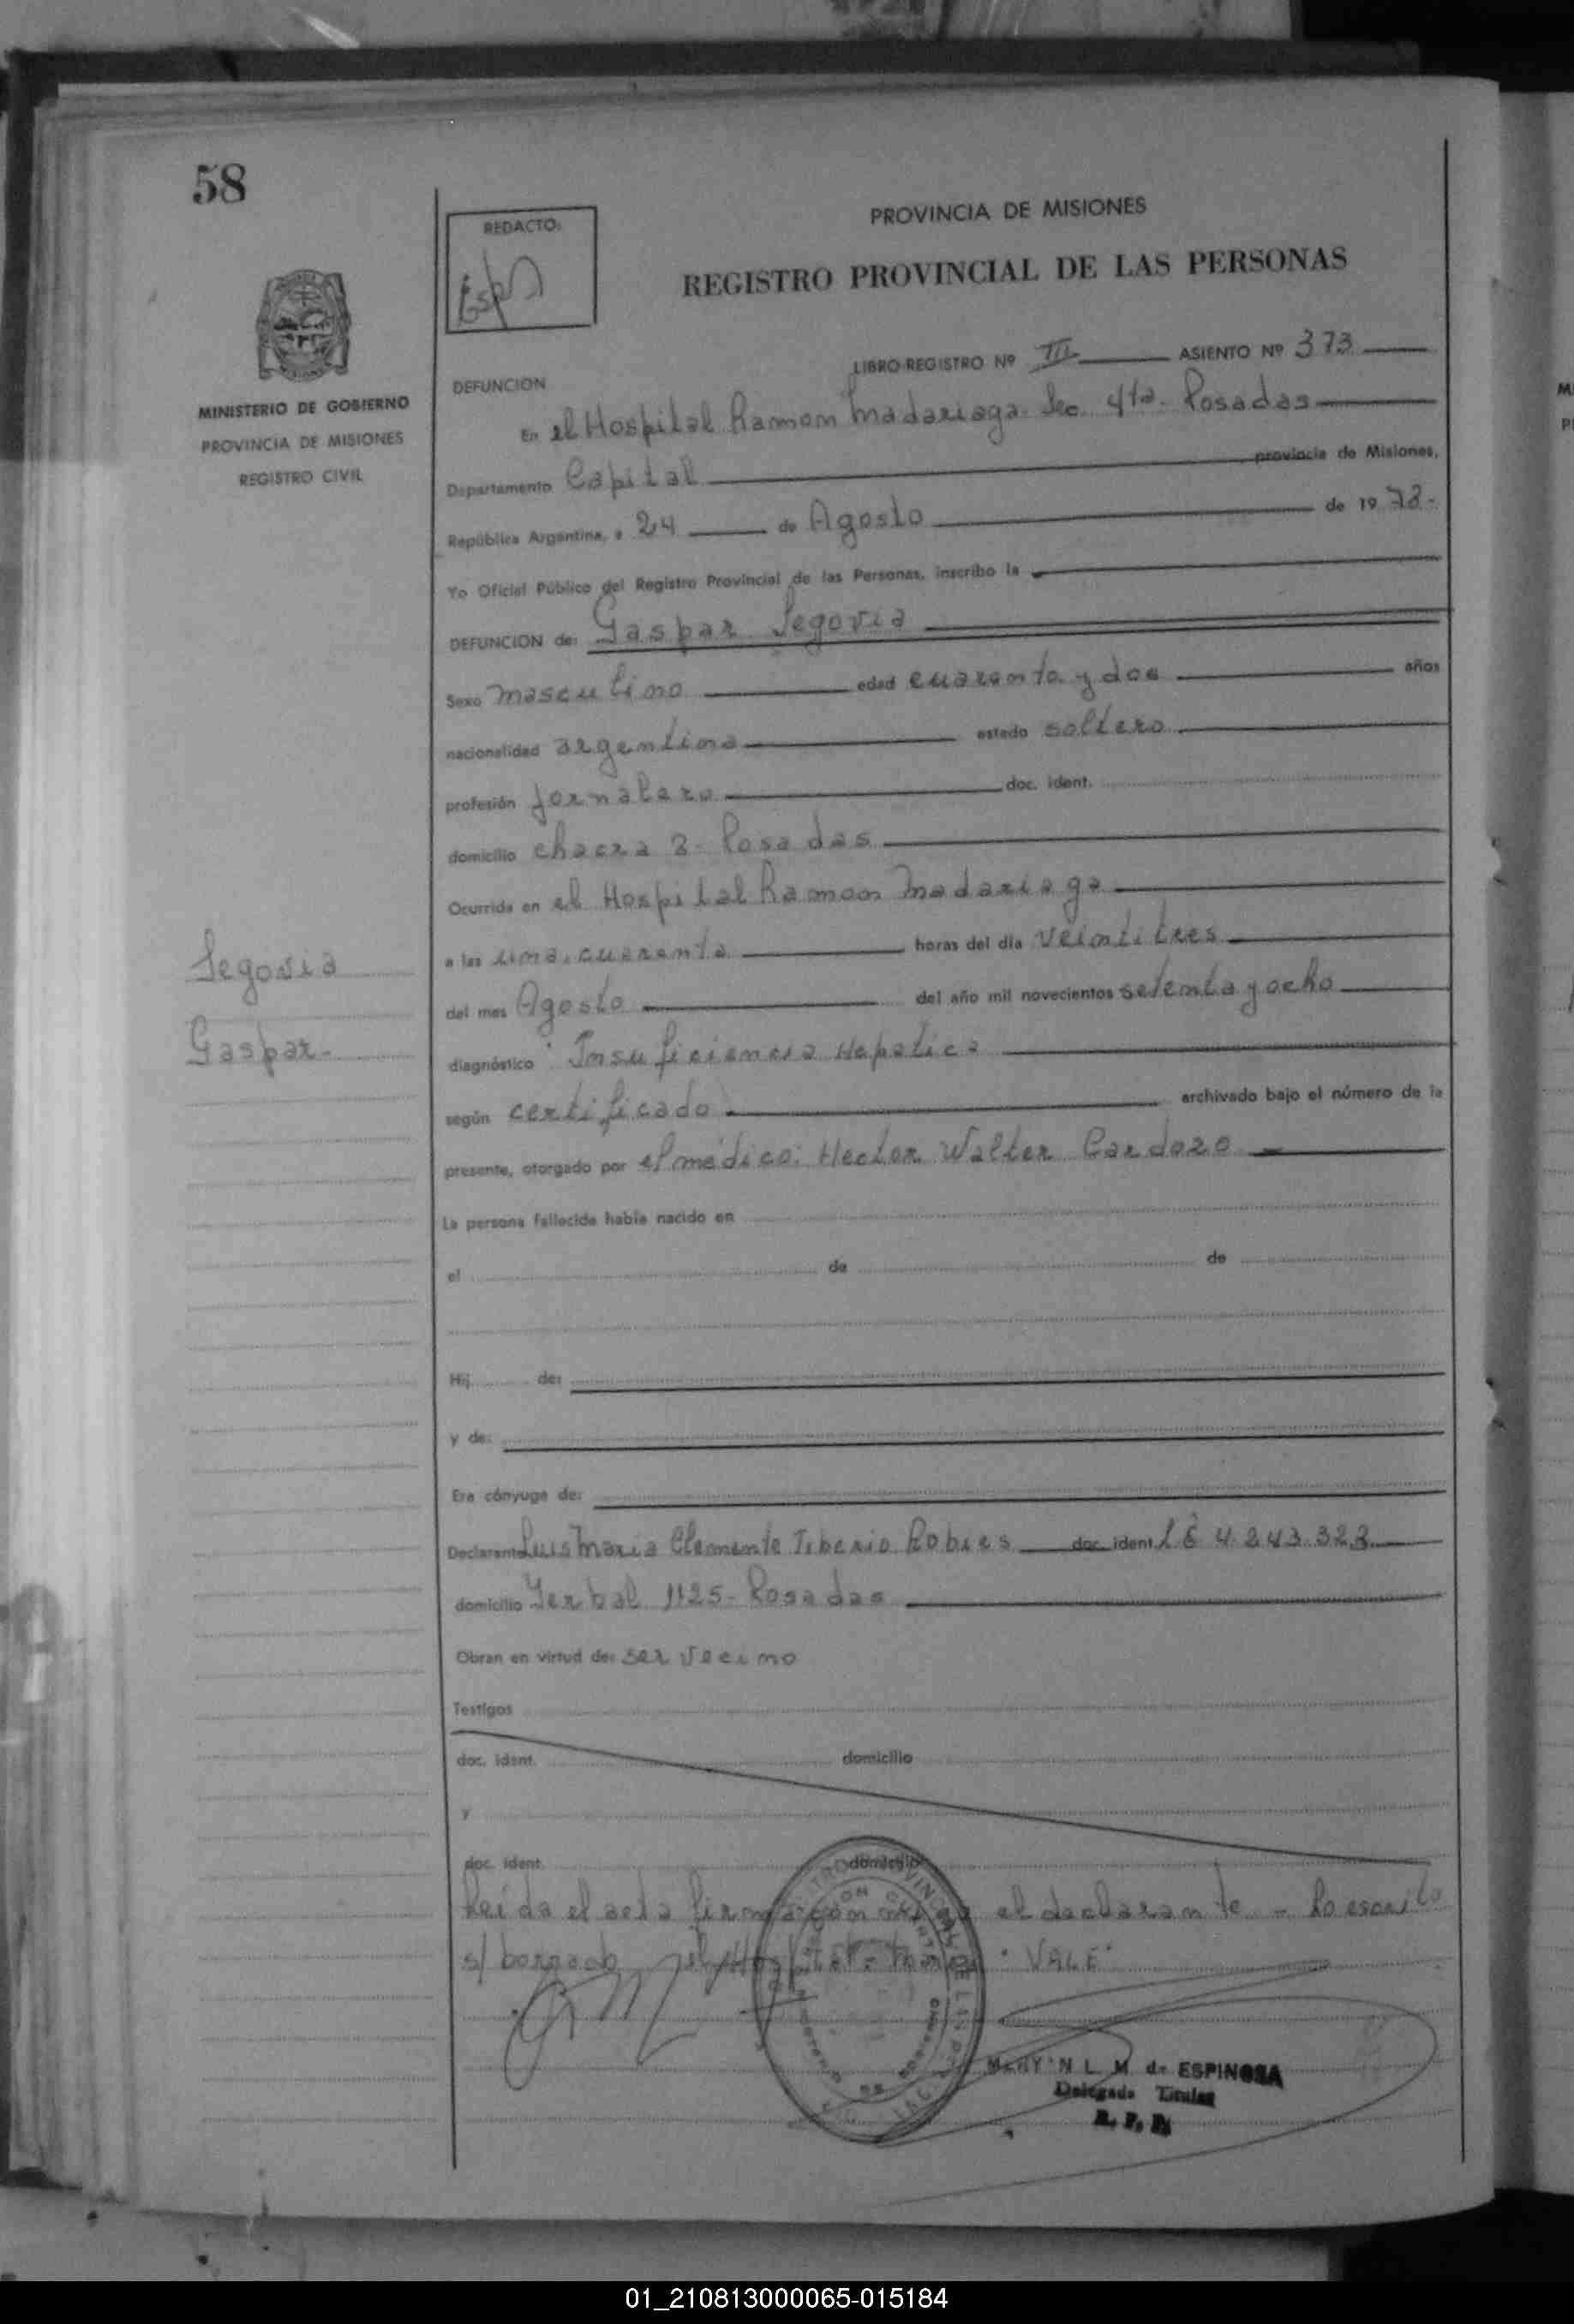 58
REDACTO:
PROVINCIA DE MISIONES
REGISTRO PROVINCIAL DE LAS PERSONAS
MINISTERIO DE GOBIERNO
PROVINCIA DE MISIONES
REGISTRO CIVIL
LIBRO-REGISTRO Nº III ASIENTO Nº 373
DEFUNCION
En el Hospital Ramon Madariaga. Sec. 4ta. Posadas
Departamento Capital provincia de Misiones,
República Argentina, a 24 de Agosto de 1978.
Yo Oficial Público del Registro Provincial de las Personas, inscribo la
DEFUNCION de: Gaspar Segovia
Sexo masculino edad cuarenta y dos años
nacionalidad argentina estado soltero
profesión jornalero doc. ident.
domicilio chacra 2- Posadas
Ocurrida en el Hospital Ramon Madariaga
a las una, cuarenta horas del día veintitres
del mes Agosto del año mil novecientos setenta y ocho
diagnóstico Insuficiencia Hepatica
según certificado archivado bajo el número de la
presente, otorgado por el médico: Hector Walter Cardozo
Segovia
Gaspar.
La persona fallecida había nacido en
el de de
Hij de:
y de:
Era cónyuge de:
Declarante Luis Maria Clemente Tiberio Robles doc. ident. LE 4.243.323
domicilio Yerbal 1125- Posadas
Obran en virtud de: ser vecino
Testigos
doc. ident. domicilio
y
doc. ident. domicilio
Leída el acta firma el declarante - Lo escrito
s/ borrado el Hospital "VALE"
N L M de ESPINOSA
Delegada Titular
R. P. P.
01_210813000065-015184